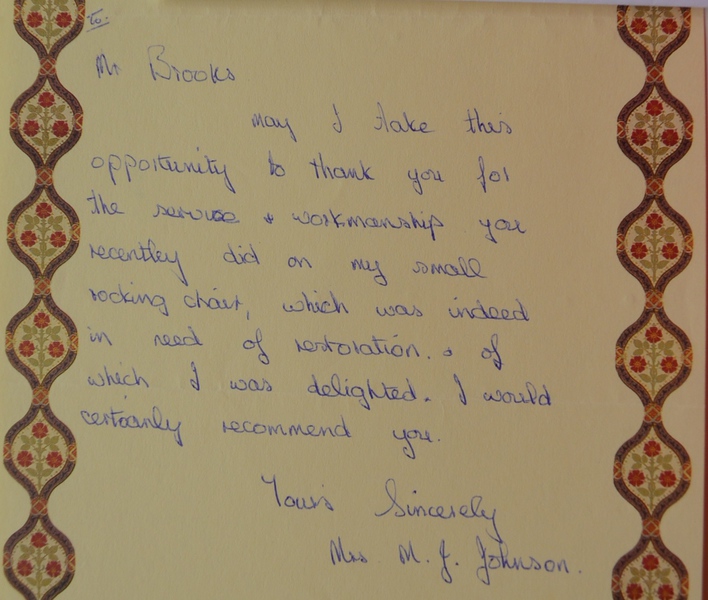 To:
Mr Brooks
may I take this
opportunity to thank you for
the service & workmanship you
recentley did on my small
rocking chair, which was indeed
in need of restoration. & of
which I was delighted. I would
certainly recommend you.
Yours Sincerely
Mrs. M. J. Johnson.